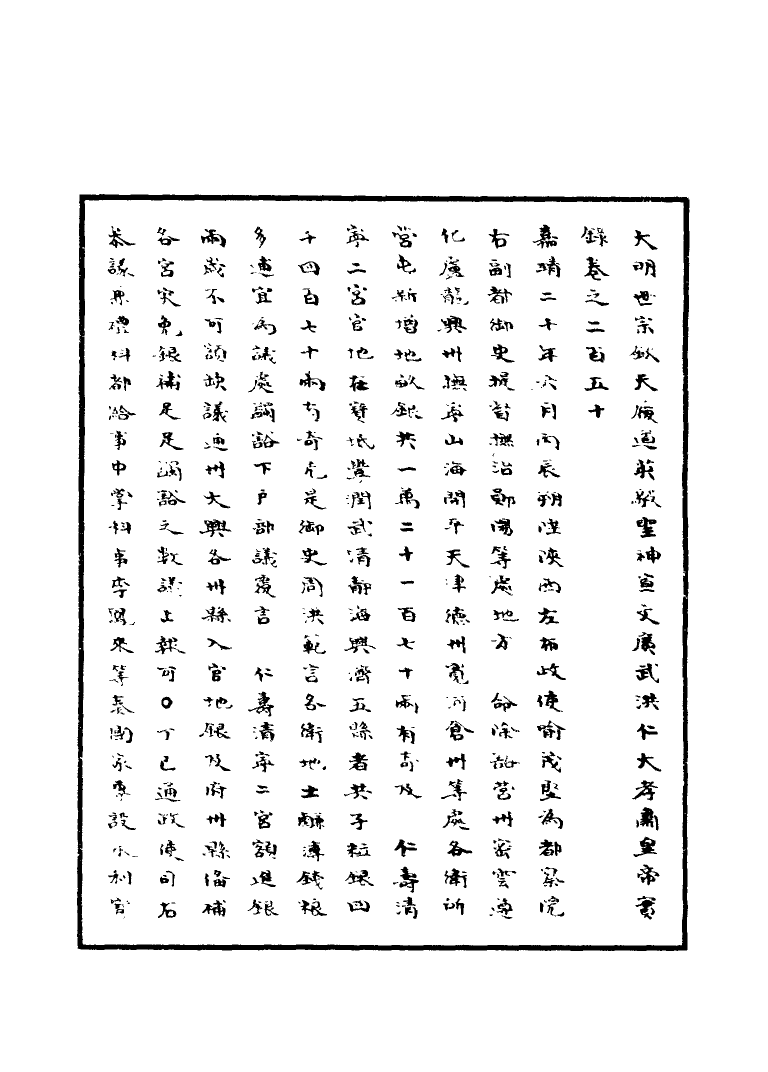 大明世宗欽天履道英毅聖神宣文廣武洪仁大孝肅皇帝實
錄卷之二百五十
嘉靖二十年六月丙辰朔陞陝西左布政使喻茂堅為都察院
右副都御史提督撫治鄖陽等處地方 命除豁營州密雲遵
化盧龍興州撫寧山海開平天津德州寬河倉州等處各衛所
營屯新增地畝銀共一萬二十一百七十兩有奇及 仁壽清
寧二宮官地在寶坻豐潤武清靜海興濟五縣者共子粒銀四
千四百七十兩有奇先是御史周洪範言各衛地土鹻薄錢粮
多逋宜為議處蠲豁下戶部議覆言 仁壽清寧二宮額進銀
兩歲不可額缺議通州大興各州縣入官地銀及府州縣俻補
各宮灾免銀補足足蠲豁之數議上報可○丁巳通政使司右
叅議兼禮科都給事中掌科事李鳳來等奏國家專設水利官